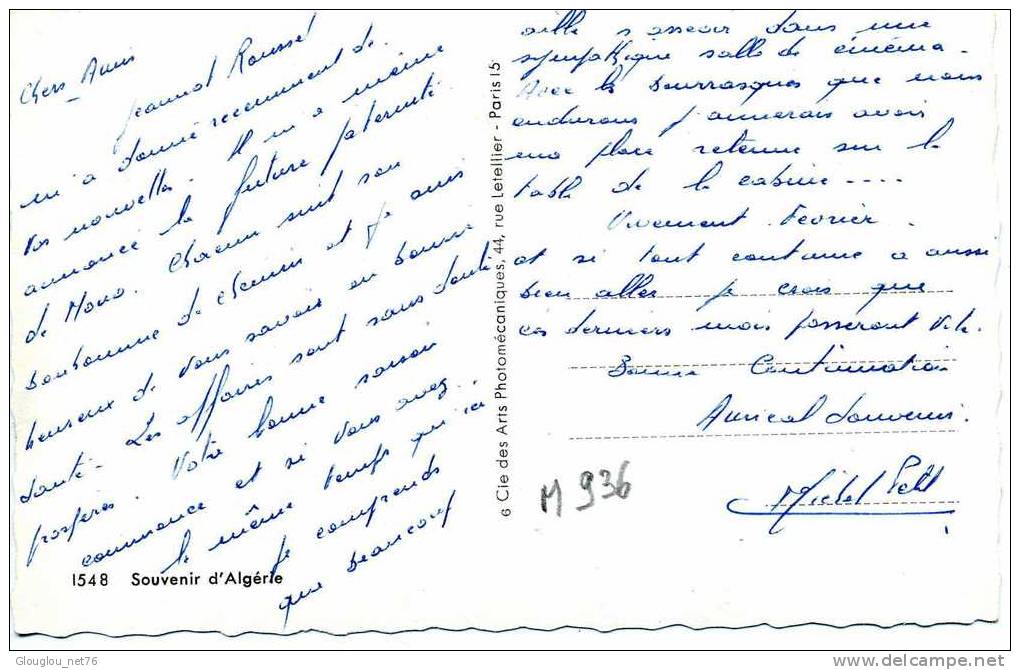 Chers Amis
Jeannot Roussel
m'a donné recemment de
vos nouvelles. Il m'a même
annoncé la future paternité
de Mono. Chacun suit son
bonhomme de chemin et je suis
heureux de vous savoir en bonne
santé. Les affaires sont sans doute
prospères. Votre bonne saison
commence et si vous avez
le même temps qu'ici
je comprends
que beaucoup
aille s'asseoir dans une
sympathique salle de cinéma.
Avec les bourrasques que nous
endurons j'aimerais avoir
ma place retenue sur la
table de la cabine ....
Vivement Février.
et si tout continue a aussi
bien aller je crois que
ces derniers mois passeront vite.
Bonne Continuation
Amical Souvenir.
Michel Petit
M 936
1548 Souvenir d'Algérie
6 Cie des Arts Photomécaniques, 44, rue Letellier - Paris 15
Glouglou_net76
delcampe.net